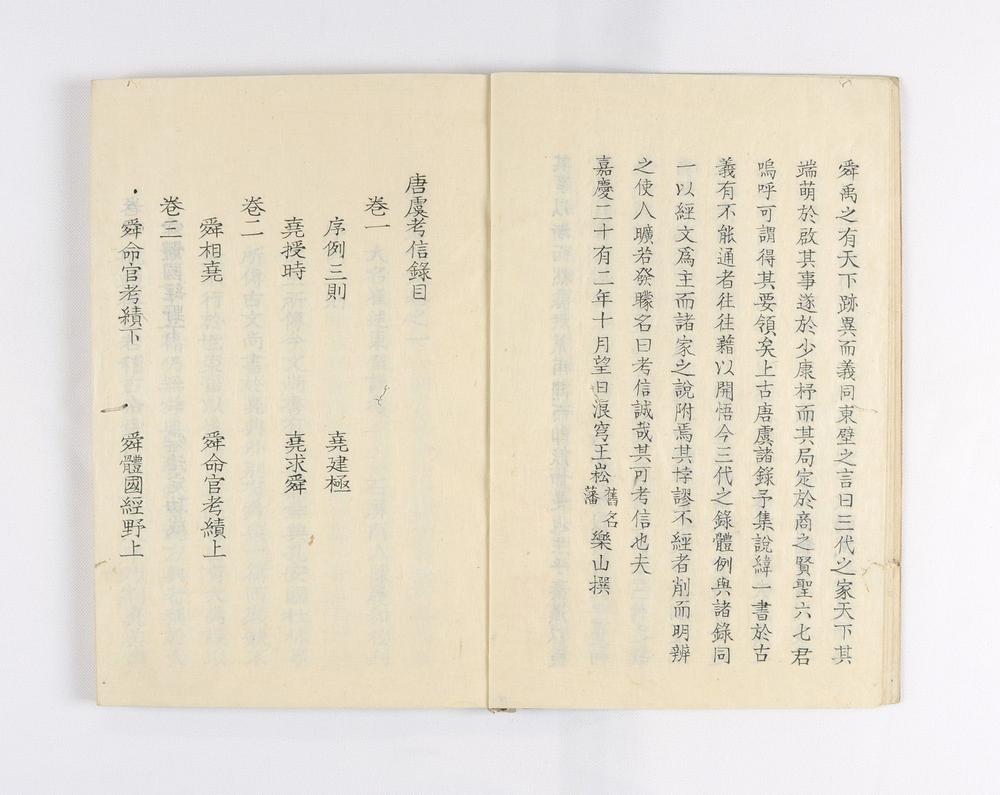 舜禹之有天下跡異而義同東壁之言曰三代之家天下其
端萌於啟其事遂於少康杼而其局定於商之賢聖六七君
嗚呼可謂得其要領矣上古唐虞諸錄予集說緯一書於古
義有不能通者往往藉以開悟今三代之錄體例與諸錄同
一以經文爲主而諸家之說附焉其悖謬不經者削而明辨
之使人曠若發矇名曰考信誠哉其可考信也夫
嘉慶二十有二年十月望日浪穹王崧舊名藩樂山撰
唐虞考信錄目
卷一
序例三則 堯建極
堯授時 堯求舜
卷二
舜相堯 舜命官考績上
卷三
舜命官考績下 舜體國經野上